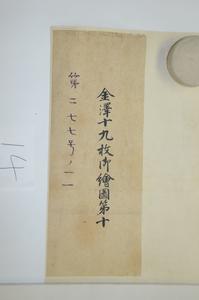 金澤十九枚御繪圖第十
第二七七号ノ一一
14